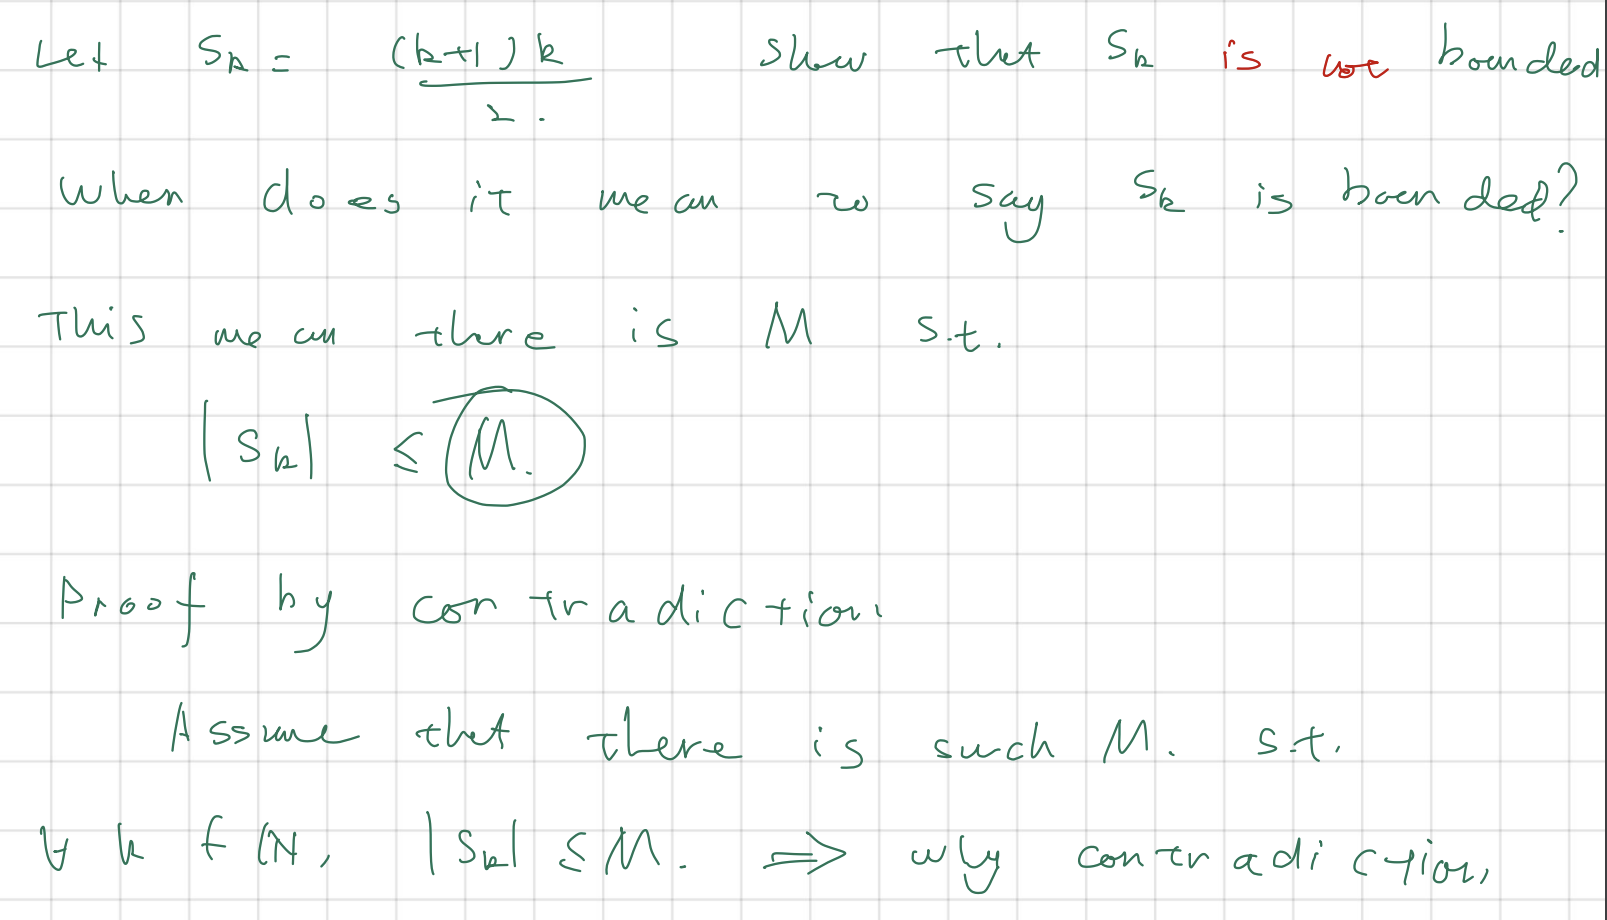 Let Sk = (k+1)k / 2. Show that Sk is not bounded
When does it mean to say Sk is bounded?
This mean there is M s.t.
|Sk| ≤ M.
Proof by contradiction.
Assume that there is such M. s.t.
∀ k ∈ ℕ, |Sk| ≤ M. ⟹ why contradiction,